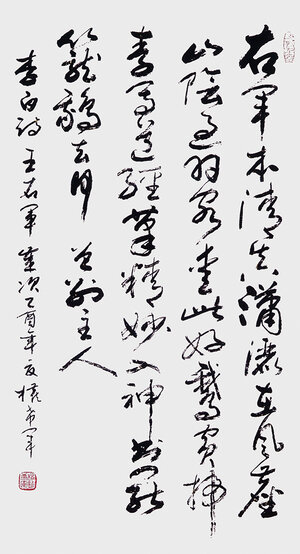 右軍本清真瀟灑在風塵
山陰過羽客愛此好鵝賓掃
素寫道經筆精妙入神書罷
籠鵝去何曾別主人
李白詩王右軍歲次乙酉年夏